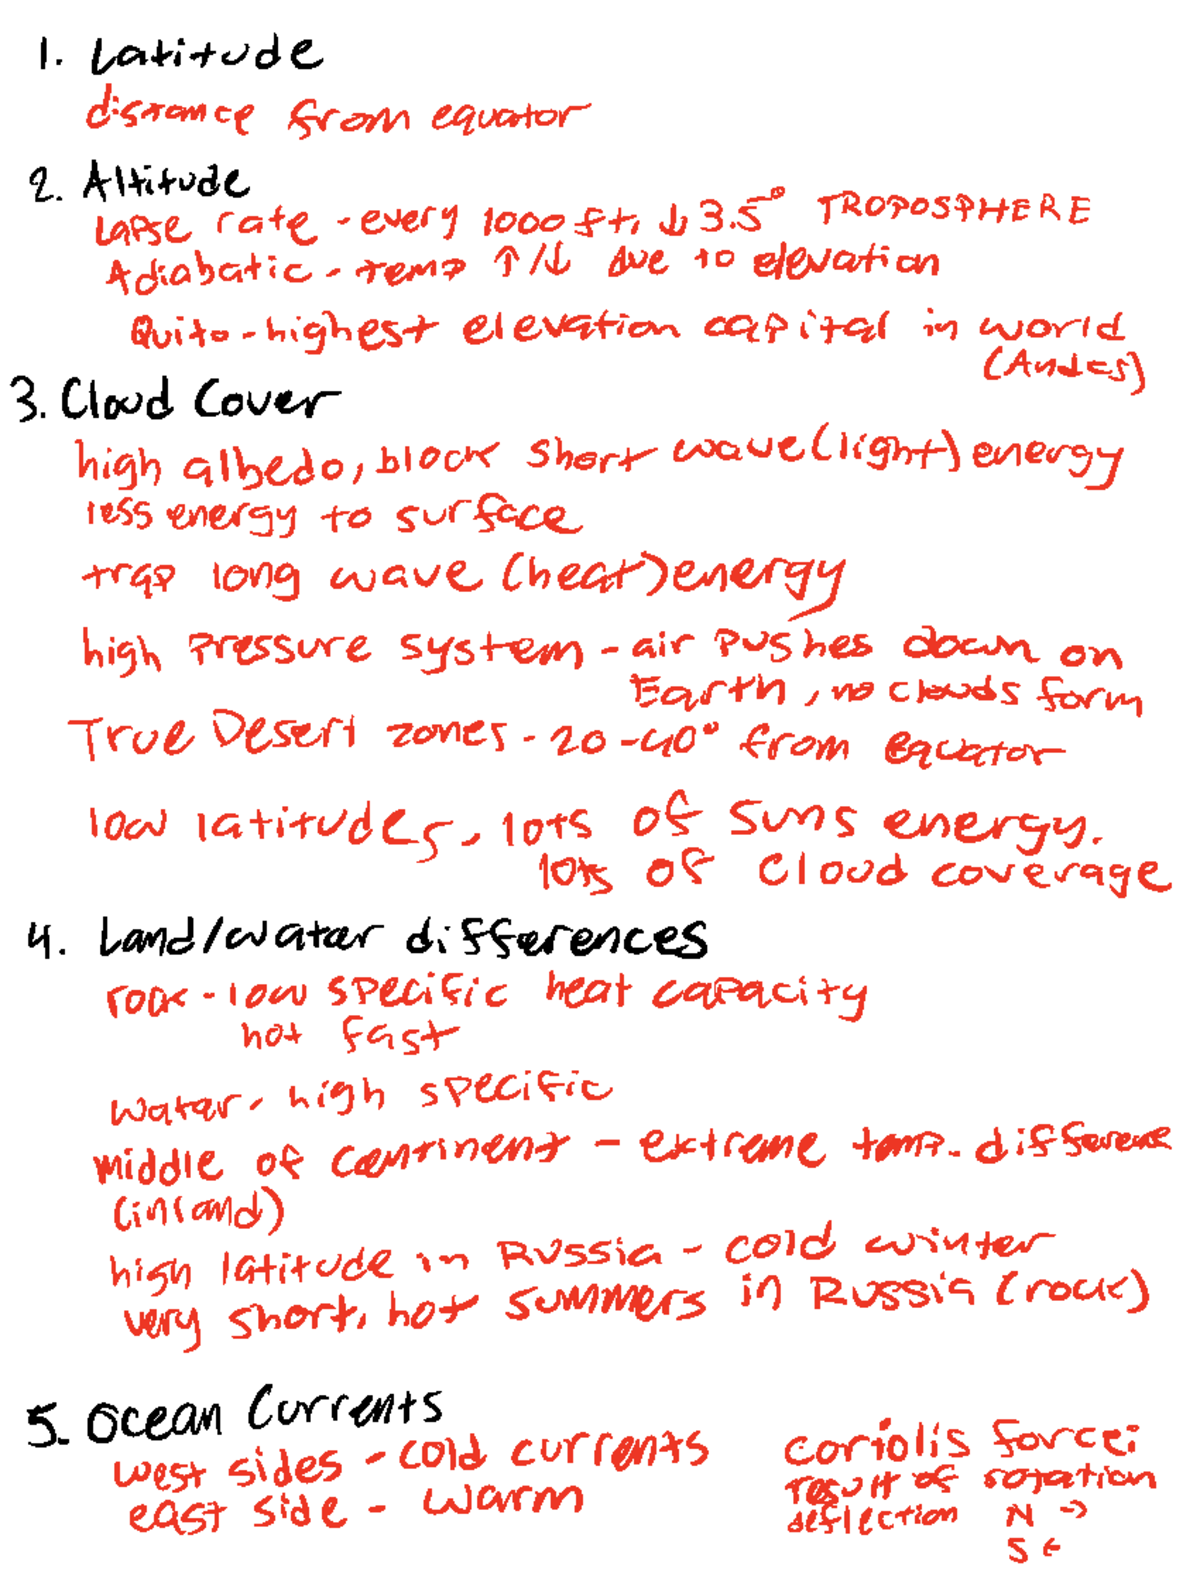 1. Latitude
distance from equator
2. Altitude
Lapse rate - every 1000 ft, ↓ 3.5° TROPOSPHERE
Adiabatic - temp ↑/↓ due to elevation
Quito - highest elevation capital in world
(Andes)
3. Cloud Cover
high albedo, block short wave (light) energy
less energy to surface
trap long wave (heat) energy
high pressure system - air pushes down on
Earth, no clouds form
True Desert zones - 20-40° from equator
low latitudes, lots of suns energy.
lots of cloud coverage
4. Land/water differences
rock - low specific heat capacity
hot fast
water - high specific
middle of continent - extreme temp. difference
(inland)
high latitude in Russia - cold winter
very short, hot summers in Russia (rock)
5. Ocean Currents
west sides - cold currents
east side - warm
coriolis force:
result of rotation
deflection N →
S ←